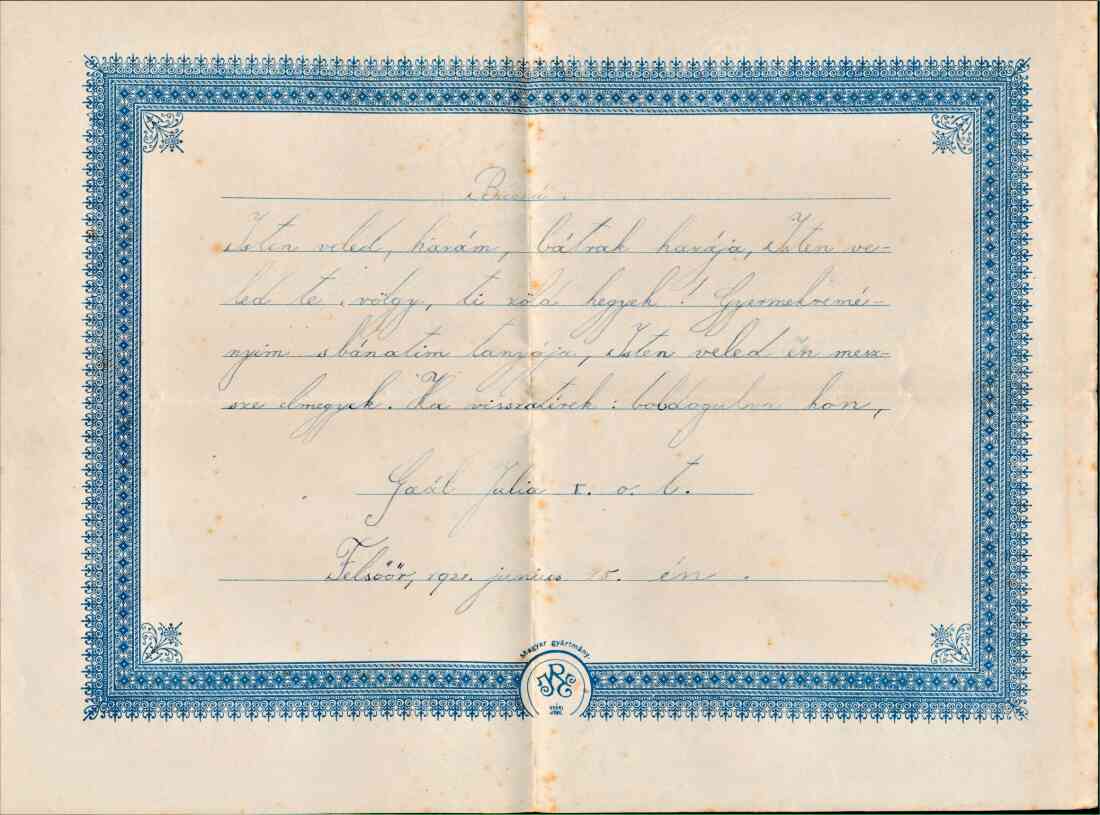 Búcsú.
Isten veled, hazám, bátrak hazája, Isten ve-
led te völgy, ti zöld hegyek! Gyermekremé-
nyim s bánatim tanyája, Isten veled én mesz-
sze elmegyek. Ha visszatérek: boldogulva hon,
Gaál Julia I. o. t.
Felsőőr, 1921. junius 15. én.
Magyar gyártmány.